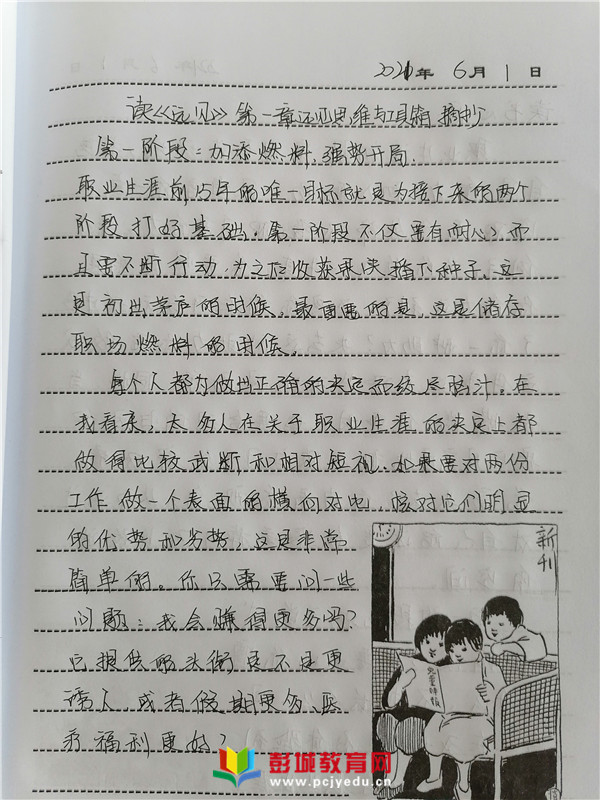 2021年 6月 1 日
读《远见》第一章远见思维与工具箱 摘抄
第一阶段：加添燃料，强势开局.
职业生涯前15年的唯一目标就是为接下来的两个
阶段打好基础。第一阶段不仅要有耐心，而
且要不断行动，为之后收获果实播下种子。这
是初出茅庐的时候，最重要的是，这是储存
职场燃料的时候。
每个人都为做出正确的决定而绞尽脑汁。在
我看来，太多人在关于职业生涯的决定上都
做得比较武断和相对短视。如果要对两份
工作做一个表面的横向对比，核对它们明显
的优势和劣势，这是非常
简单的。你只需要问一些
问题：我会赚得更多吗？
它提供的头衔是不是更
诱人或者假期更多、医
疗福利更好？
新刊
儿童时报
彭城教育网
www.pcjyedu.cn